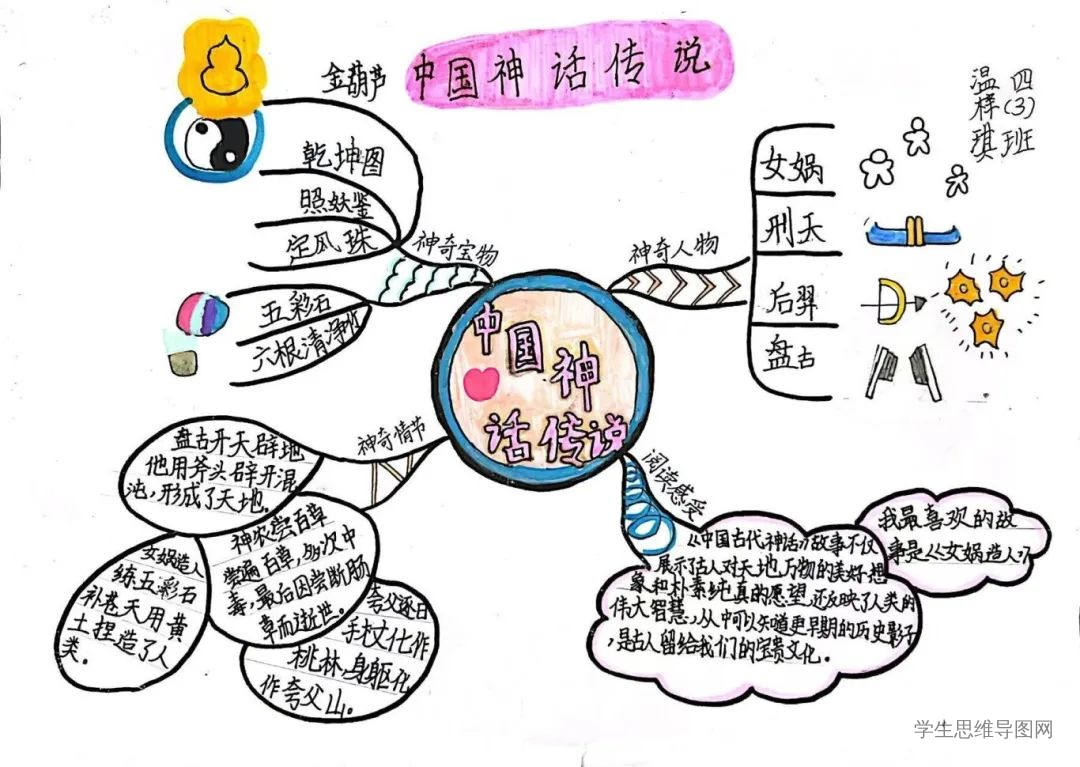 中国神话传说
四(3)班
温样琪
中国神话传说
神奇宝物
金葫芦
乾坤图
照妖鉴
定风珠
五彩石
六根清净竹
神奇人物
女娲
刑天
后羿
盘古
神奇情节
盘古开天辟地
他用斧头辟开混
沌,形成了天地。
女娲造人
练五彩石
补苍天用黄
土捏造了人
类。
神农尝百草
尝遍百草,多次中
毒,最后因尝断肠
草而逝世。
夸父逐日
手杖化作
桃林,身躯化
作夸父山。
阅读感受
《中国古代神话》故事不仅
展示了古人对天地万物的美好想
象和朴素纯真的愿望,还反映了人类的
伟大智慧,从中可以知道更早期的历史影子
,是古人留给我们的宝贵文化。
我最喜欢的故
事是《女娲造人》
学生思维导图网